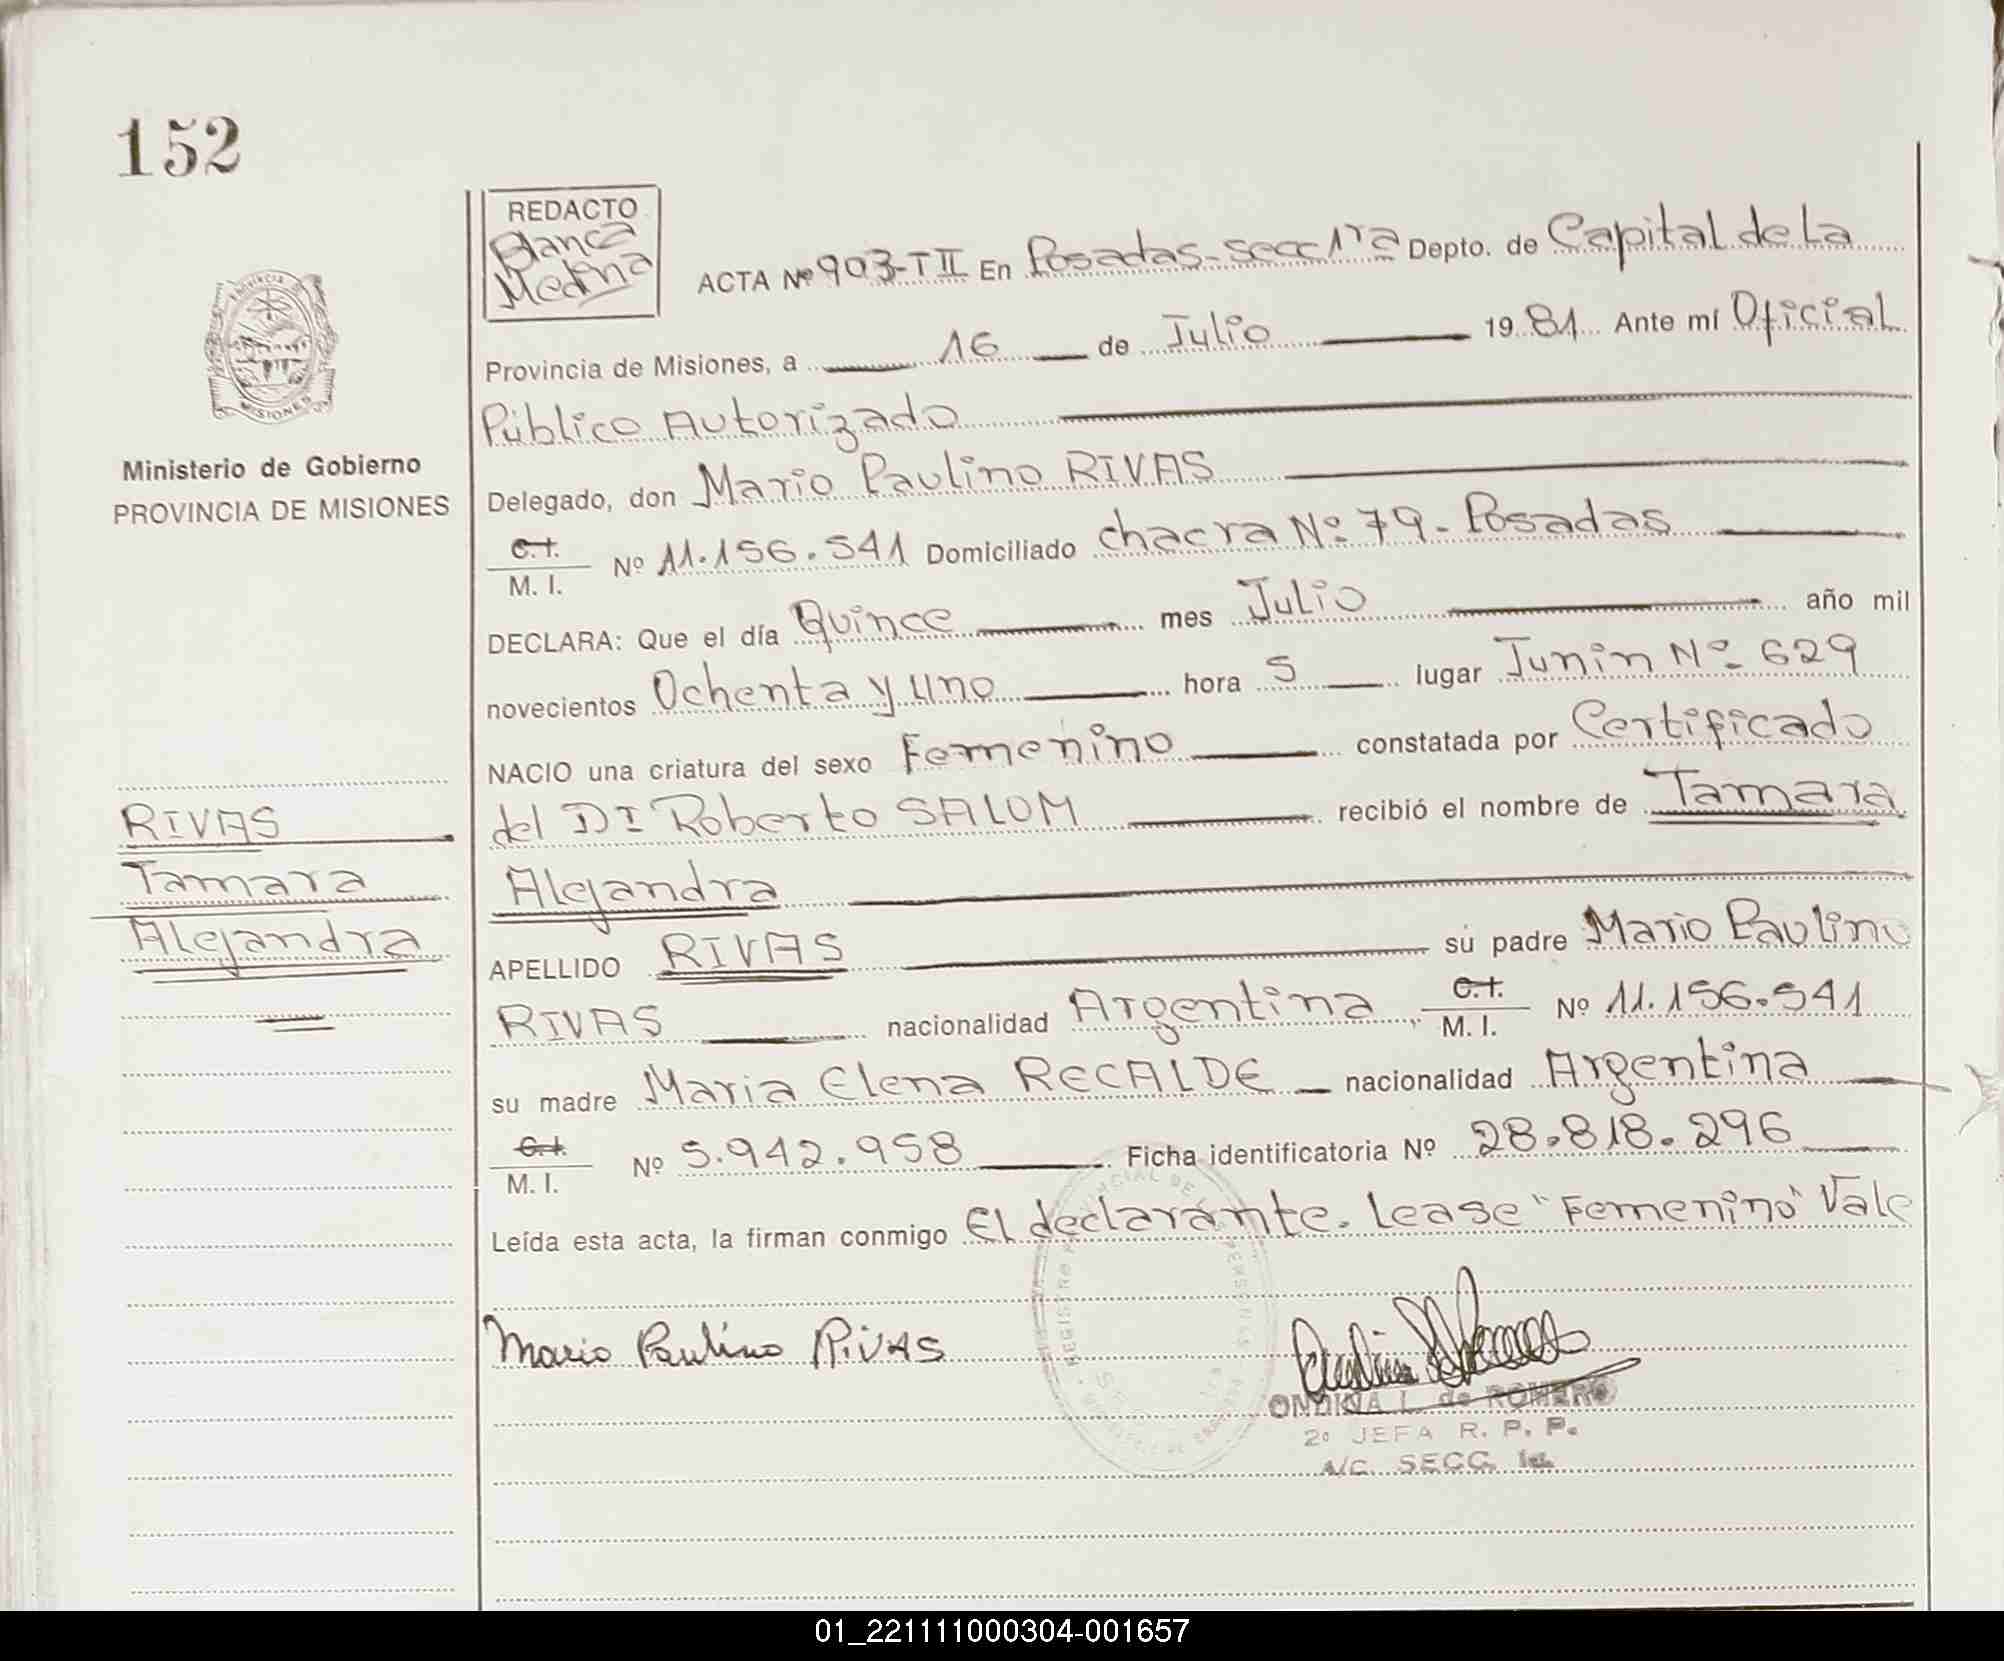 152
REDACTO
Blanca
Medina
ACTA Nº 903-T II En Posadas-secc 1ra Depto. de Capital de La
Provincia de Misiones, a 16 de Julio 1981 Ante mí Oficial
Público Autorizado
Ministerio de Gobierno
PROVINCIA DE MISIONES
Delegado, don Mario Paulino RIVAS
C.I.
M. I. Nº 11.156.541 Domiciliado chacra Nº 79 - Posadas
DECLARA: Que el día Quince mes Julio año mil
novecientos Ochenta y Uno hora 5 lugar Junin Nº 629
NACIO una criatura del sexo Femenino constatada por Certificado
del Dr Roberto SALOM recibió el nombre de Tamara
Alejandra
RIVAS
Tamara
Alejandra
APELLIDO RIVAS su padre Mario Paulino
RIVAS nacionalidad Argentina, C.I.
M. I. Nº 11.156.541
su madre Maria Elena RECALDE nacionalidad Argentina
C.I.
M. I. Nº 5.942.958 Ficha identificatoria Nº 28.818.296
Leída esta acta, la firman conmigo El declarante. Lease "Femenino" Vale
Mario Paulino RIVAS
ONDINA L. de ROMERO
2º JEFA R. P. P.
A/C. SECC. 1a.
MISIONES
01_221111000304-001657